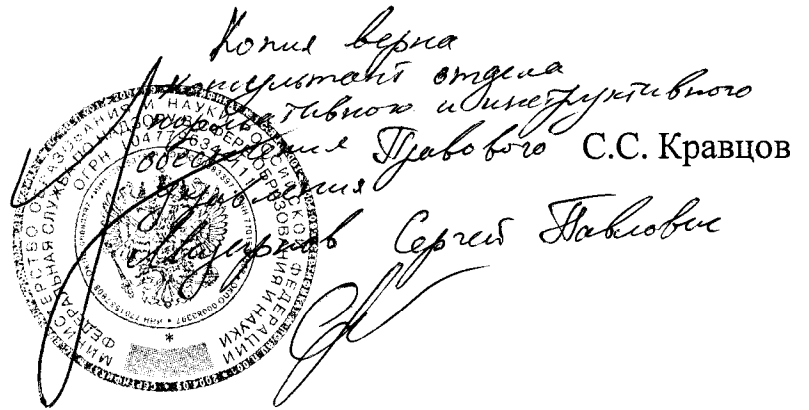 Копия верна
консультант отдела
нормативного и инструктивного
обеспечения Правового С.С. Кравцов
управления
Сергей Павлович
МИНИСТЕРСТВО ОБРАЗОВАНИЯ И НАУКИ РОССИЙСКОЙ ФЕДЕРАЦИИ
ФЕДЕРАЛЬНАЯ СЛУЖБА ПО НАДЗОРУ В СФЕРЕ ОБРАЗОВАНИЯ И НАУКИ
ОГРН